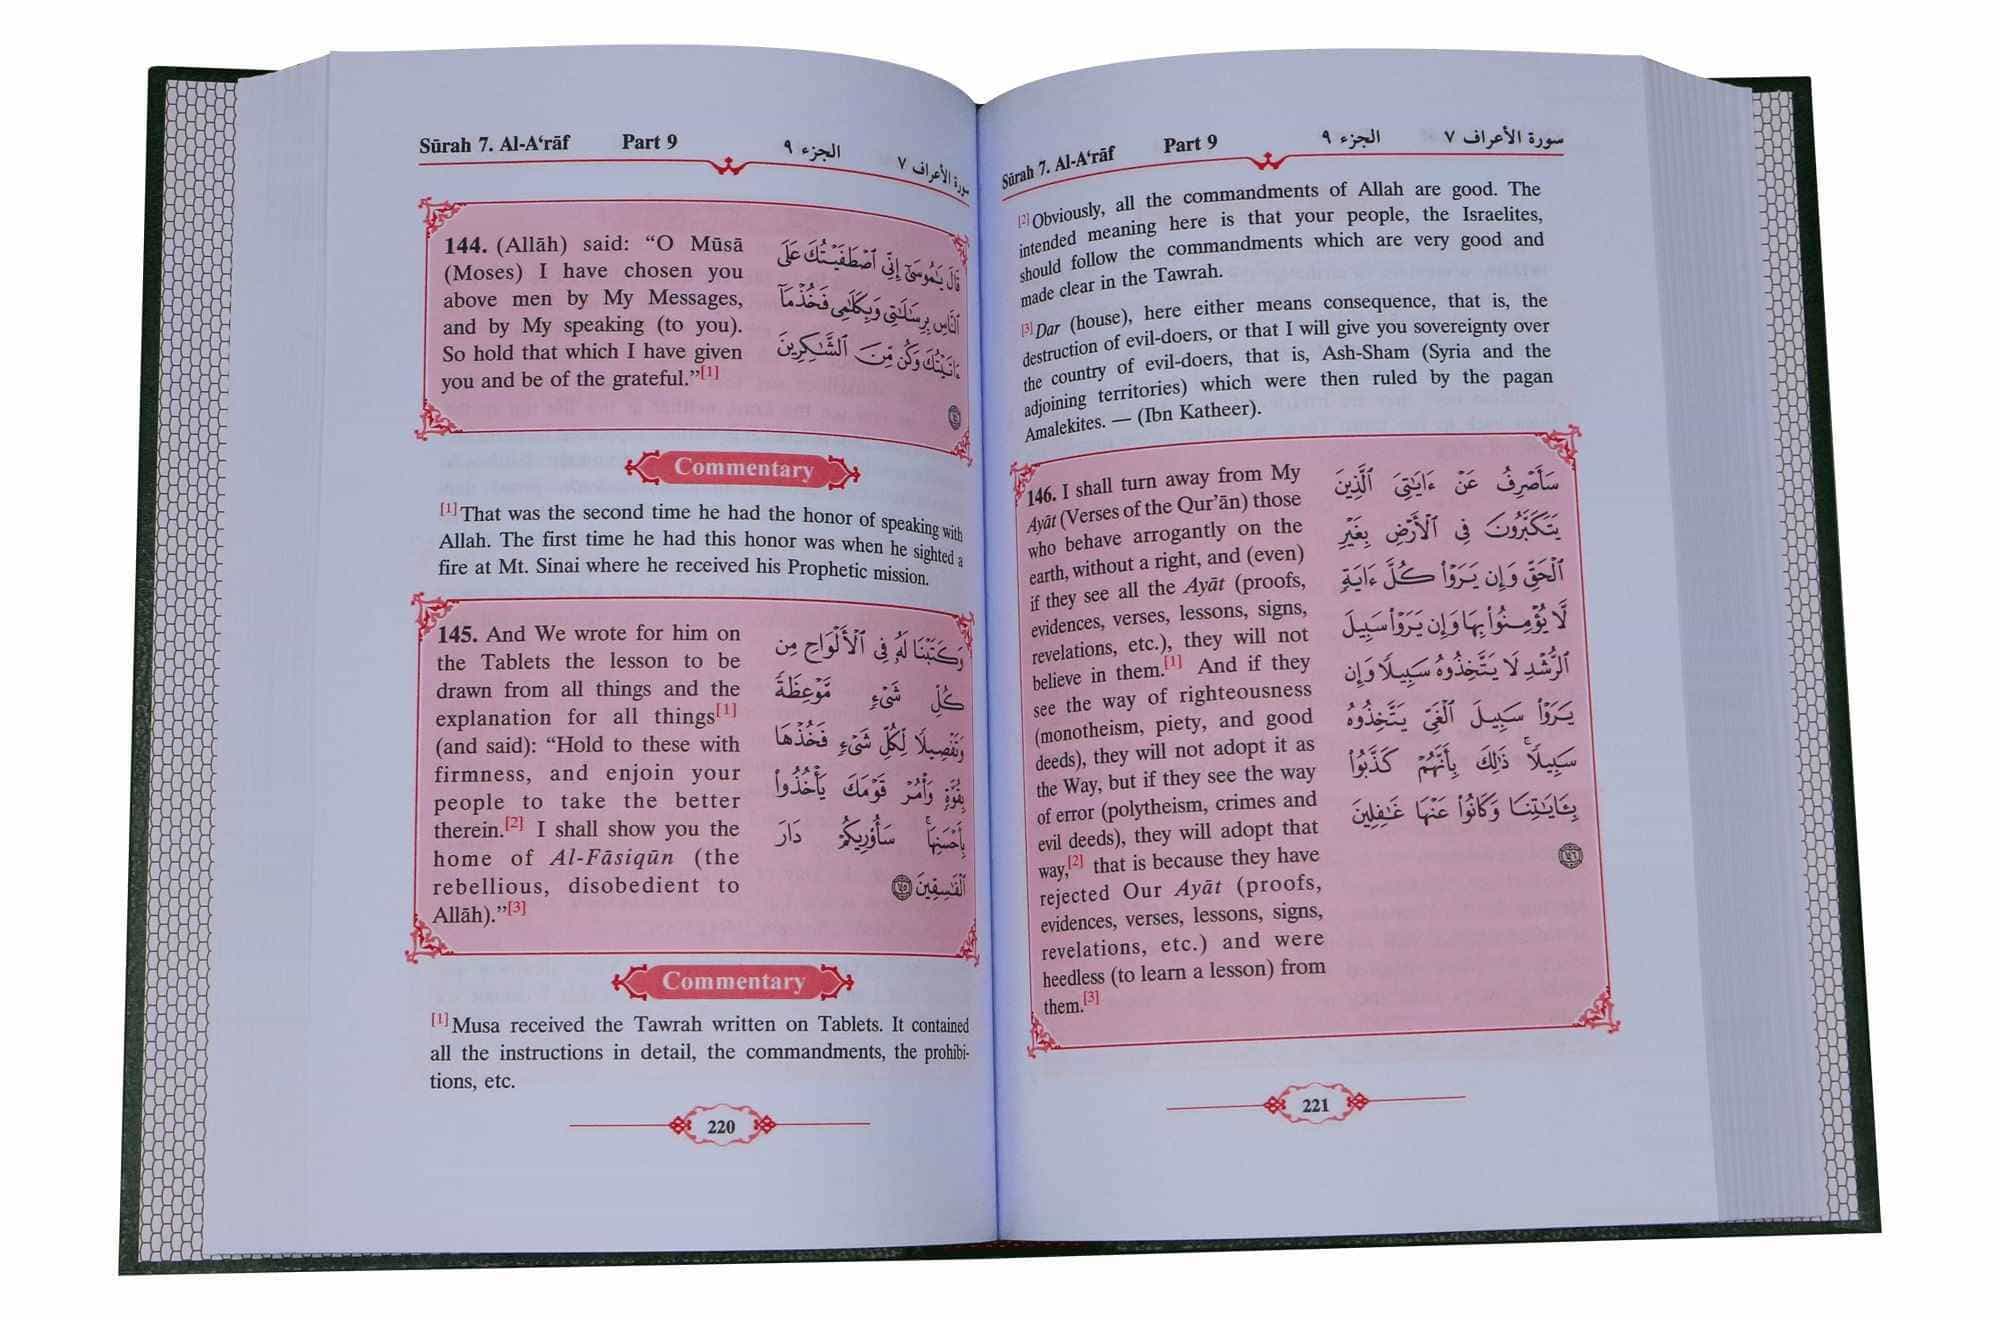 Sūrah 7. Al-A‘rāf Part 9 الجزء ٩ سورة الأعراف ٧
144. (Allāh) said: “O Mūsā
(Moses) I have chosen you
above men by My Messages,
and by My speaking (to you).
So hold that which I have given
you and be of the grateful.”[1]
قَالَ يَٰمُوسَىٰٓ إِنِّي ٱصْطَفَيْتُكَ عَلَى
ٱلنَّاسِ بِرِسَٰلَٰتِي وَبِكَلَٰمِي فَخُذْ مَآ
ءَاتَيْتُكَ وَكُن مِّنَ ٱلشَّٰكِرِينَ
١٤٤
Commentary
[1]That was the second time he had the honor of speaking with
Allah. The first time he had this honor was when he sighted a
fire at Mt. Sinai where he received his Prophetic mission.
145. And We wrote for him on
the Tablets the lesson to be
drawn from all things and the
explanation for all things[1]
(and said): “Hold to these with
firmness, and enjoin your
people to take the better
therein.[2] I shall show you the
home of Al-Fāsiqūn (the
rebellious, disobedient to
Allāh).”[3]
وَكَتَبْنَا لَهُۥ فِي ٱلْأَلْوَاحِ مِن
كُلِّ شَيْءٍ مَّوْعِظَةً
وَتَفْصِيلًا لِّكُلِّ شَيْءٍ فَخُذْهَا
بِقُوَّةٍ وَأْمُرْ قَوْمَكَ يَأْخُذُوا۟
بِأَحْسَنِهَا ۚ سَأُو۟رِيكُمْ دَارَ
ٱلْفَٰسِقِينَ ١٤٥
Commentary
[1]Musa received the Tawrah written on Tablets. It contained
all the instructions in detail, the commandments, the prohibi-
tions, etc.
220
Sūrah 7. Al-A‘rāf Part 9 الجزء ٩ سورة الأعراف ٧
[2]Obviously, all the commandments of Allah are good. The
intended meaning here is that your people, the Israelites,
should follow the commandments which are very good and
made clear in the Tawrah.
[3]Dar (house), here either means consequence, that is, the
destruction of evil-doers, or that I will give you sovereignty over
the country of evil-doers, that is, Ash-Sham (Syria and the
adjoining territories) which were then ruled by the pagan
Amalekites. — (Ibn Katheer).
146. I shall turn away from My
Ayāt (Verses of the Qur’ān) those
who behave arrogantly on the
earth, without a right, and (even)
if they see all the Ayāt (proofs,
evidences, verses, lessons, signs,
revelations, etc.), they will not
believe in them.[1] And if they
see the way of righteousness
(monotheism, piety, and good
deeds), they will not adopt it as
the Way, but if they see the way
of error (polytheism, crimes and
evil deeds), they will adopt that
way,[2] that is because they have
rejected Our Ayāt (proofs,
evidences, verses, lessons, signs,
revelations, etc.) and were
heedless (to learn a lesson) from
them.[3]
سَأَصْرِفُ عَنْ ءَايَٰتِيَ ٱلَّذِينَ
يَتَكَبَّرُونَ فِي ٱلْأَرْضِ بِغَيْرِ
ٱلْحَقِّ وَإِن يَرَوْا۟ كُلَّ ءَايَةٍ
لَّا يُؤْمِنُوا۟ بِهَا وَإِن يَرَوْا۟ سَبِيلَ
ٱلرُّشْدِ لَا يَتَّخِذُوهُ سَبِيلًا وَإِن
يَرَوْا۟ سَبِيلَ ٱلْغَيِّ يَتَّخِذُوهُ
سَبِيلًا ۚ ذَٰلِكَ بِأَنَّهُمْ كَذَّبُوا۟
بِـَٔايَٰتِنَا وَكَانُوا۟ عَنْهَا غَٰفِلِينَ
١٤٦
221